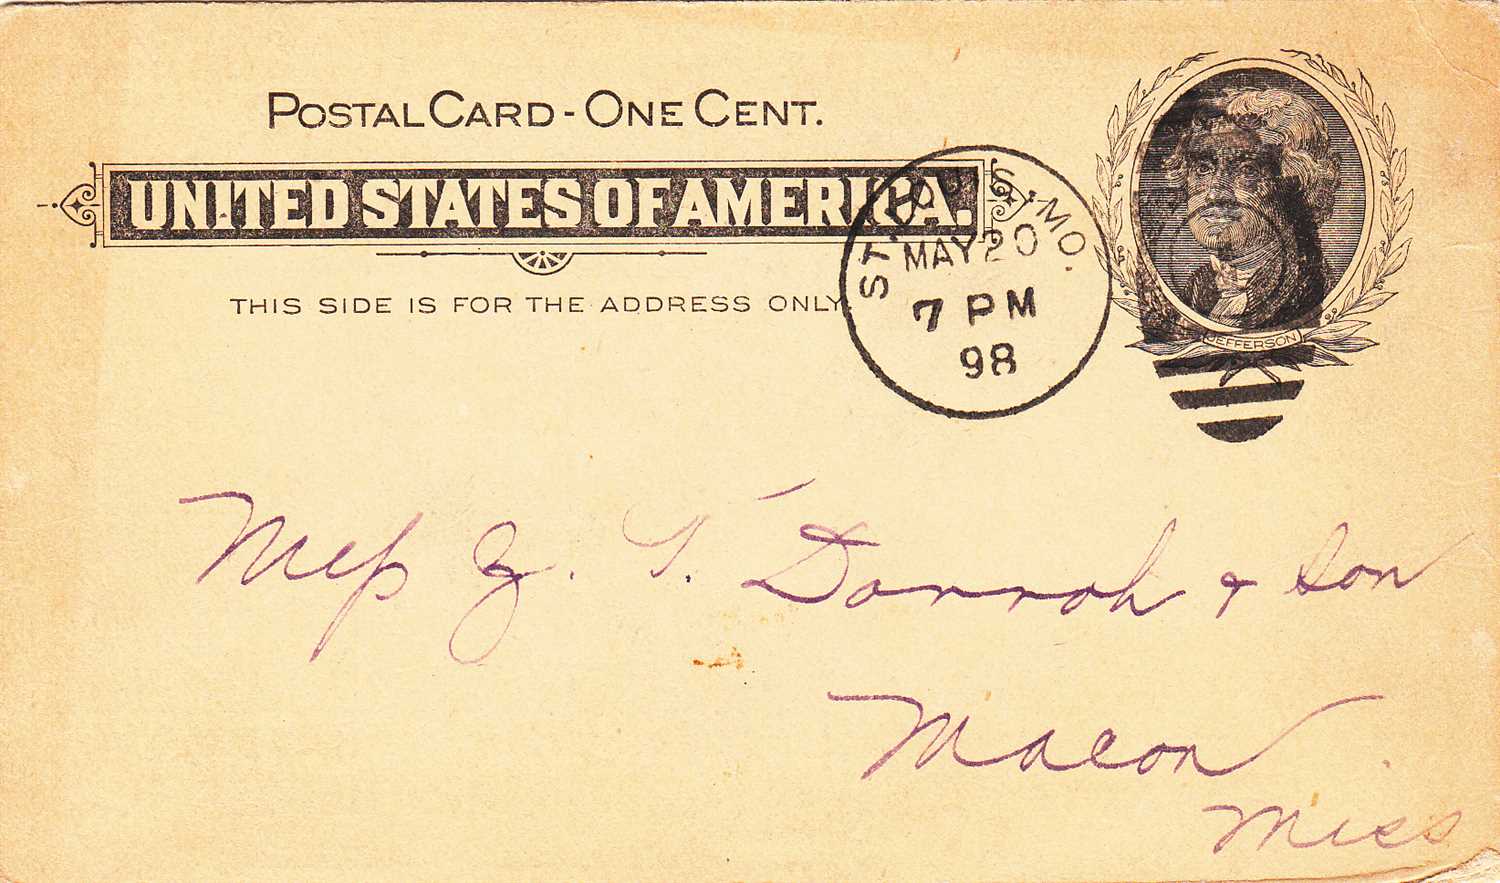 POSTAL CARD - ONE CENT.
UNITED STATES OF AMERICA.
THIS SIDE IS FOR THE ADDRESS ONLY.
ST. LOUIS, MO.
MAY 20
7 PM
98
JEFFERSON
T. Dorroh & Son
Macon
Miss